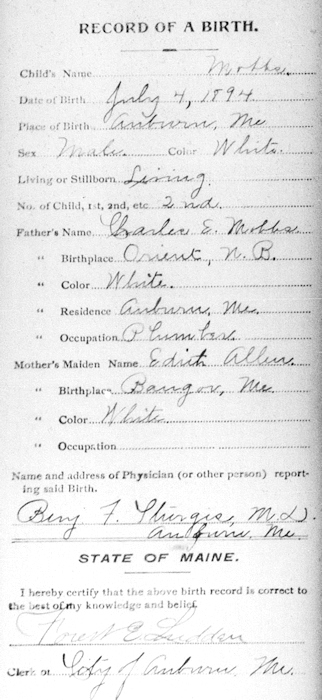 RECORD OF A BIRTH.
Child's Name Mobbs.
Date of Birth July 4, 1894
Place of Birth Auburn, Me
Sex Male Color White.
Living or Stillborn Living
No. of Child, 1st, 2nd, etc 2nd
Father's Name Charles E. Mobbs
" Birthplace Orient, N. B.
" Color White.
" Residence Auburn, Me.
" Occupation Plumber
Mother's Maiden Name Edith Allen
" Birthplace Bangor, Me
" Color White
" Occupation
Name and address of Physician (or other person) report-
ing said Birth.
Benj F. Sturgis, M.D.
Auburn, Me.
STATE OF MAINE.
I hereby certify that the above birth record is correct to
the best of my knowledge and belief.
E.
Clerk of City of Auburn, Me.